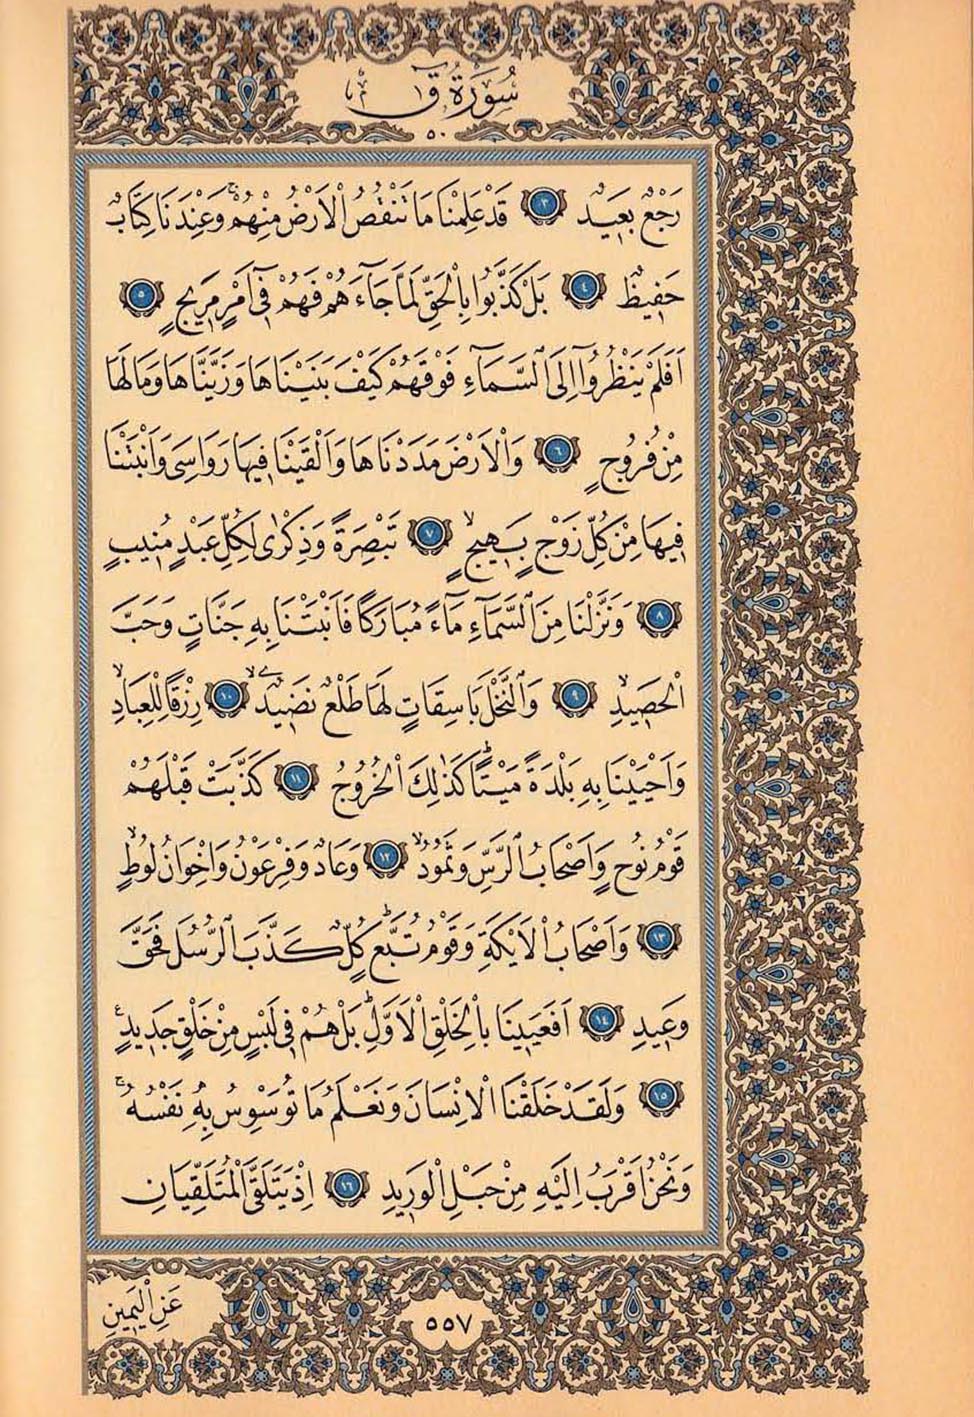 سُورَةُ قٓ
٥٠
رَجْعٌ بَعِيدٌ ٣ قَدْ عَلِمْنَا مَا تَنْقُصُ الْاَرْضُ مِنْهُمْ وَعِنْدَنَا كِتَابٌ
حَفِيظٌ ٤ بَلْ كَذَّبُوا بِالْحَقِّ لَمَّا جَاءَهُمْ فَهُمْ فٓى اَمْرٍ مَرِيجٍ ٥
اَفَلَمْ يَنْظُرُوٓا اِلَى السَّمَٓاءِ فَوْقَهُمْ كَيْفَ بَنَيْنَاهَا وَزَيَّنَّاهَا وَمَا لَهَا
مِنْ فُرُوجٍ ٦ وَالْاَرْضَ مَدَدْنَاهَا وَاَلْقَيْنَا فِيهَا رَوَاسِىَ وَاَنْبَتْنَا
فِيهَا مِنْ كُلِّ زَوْجٍ بَهِيجٍ ٧ تَبْصِرَةً وَذِكْرٰى لِكُلِّ عَبْدٍ مُنِيبٍ
٨ وَنَزَّلْنَا مِنَ السَّمَٓاءِ مَٓاءً مُبَارَكًا فَاَنْبَتْنَا بِهِ جَنَّاتٍ وَحَبَّ
الْحَصِيدِ ٩ وَالنَّخْلَ بَاسِقَاتٍ لَهَا طَلْعٌ نَضِيدٌ ١٠ رِزْقًا لِلْعِبَادِ
وَاَحْيَيْنَا بِهِ بَلْدَةً مَيْتًا كَذٰلِكَ الْخُرُوجُ ١١ كَذَّبَتْ قَبْلَهُمْ
قَوْمُ نُوحٍ وَاَصْحَابُ الرَّسِّ وَثَمُودُ ١٢ وَعَادٌ وَفِرْعَوْنُ وَاِخْوَانُ لُوطٍ
١٣ وَاَصْحَابُ الْاَيْكَةِ وَقَوْمُ تُبَّعٍ كُلٌّ كَذَّبَ الرُّسُلَ فَحَقَّ
وَعِيدِ ١٤ اَفَعَيِينَا بِالْخَلْقِ الْاَوَّلِ بَلْ هُمْ فِى لَبْسٍ مِنْ خَلْقٍ جَدِيدٍ
١٥ وَلَقَدْ خَلَقْنَا الْاِنْسَانَ وَنَعْلَمُ مَا تُوَسْوِسُ بِهِ نَفْسُهُ
وَنَحْنُ اَقْرَبُ اِلَيْهِ مِنْ حَبْلِ الْوَرِيدِ ١٦ اِذْ يَتَلَقَّى الْمُتَلَقِّيَانِ
عَنِ الْيَمِينِ
٥٥٧